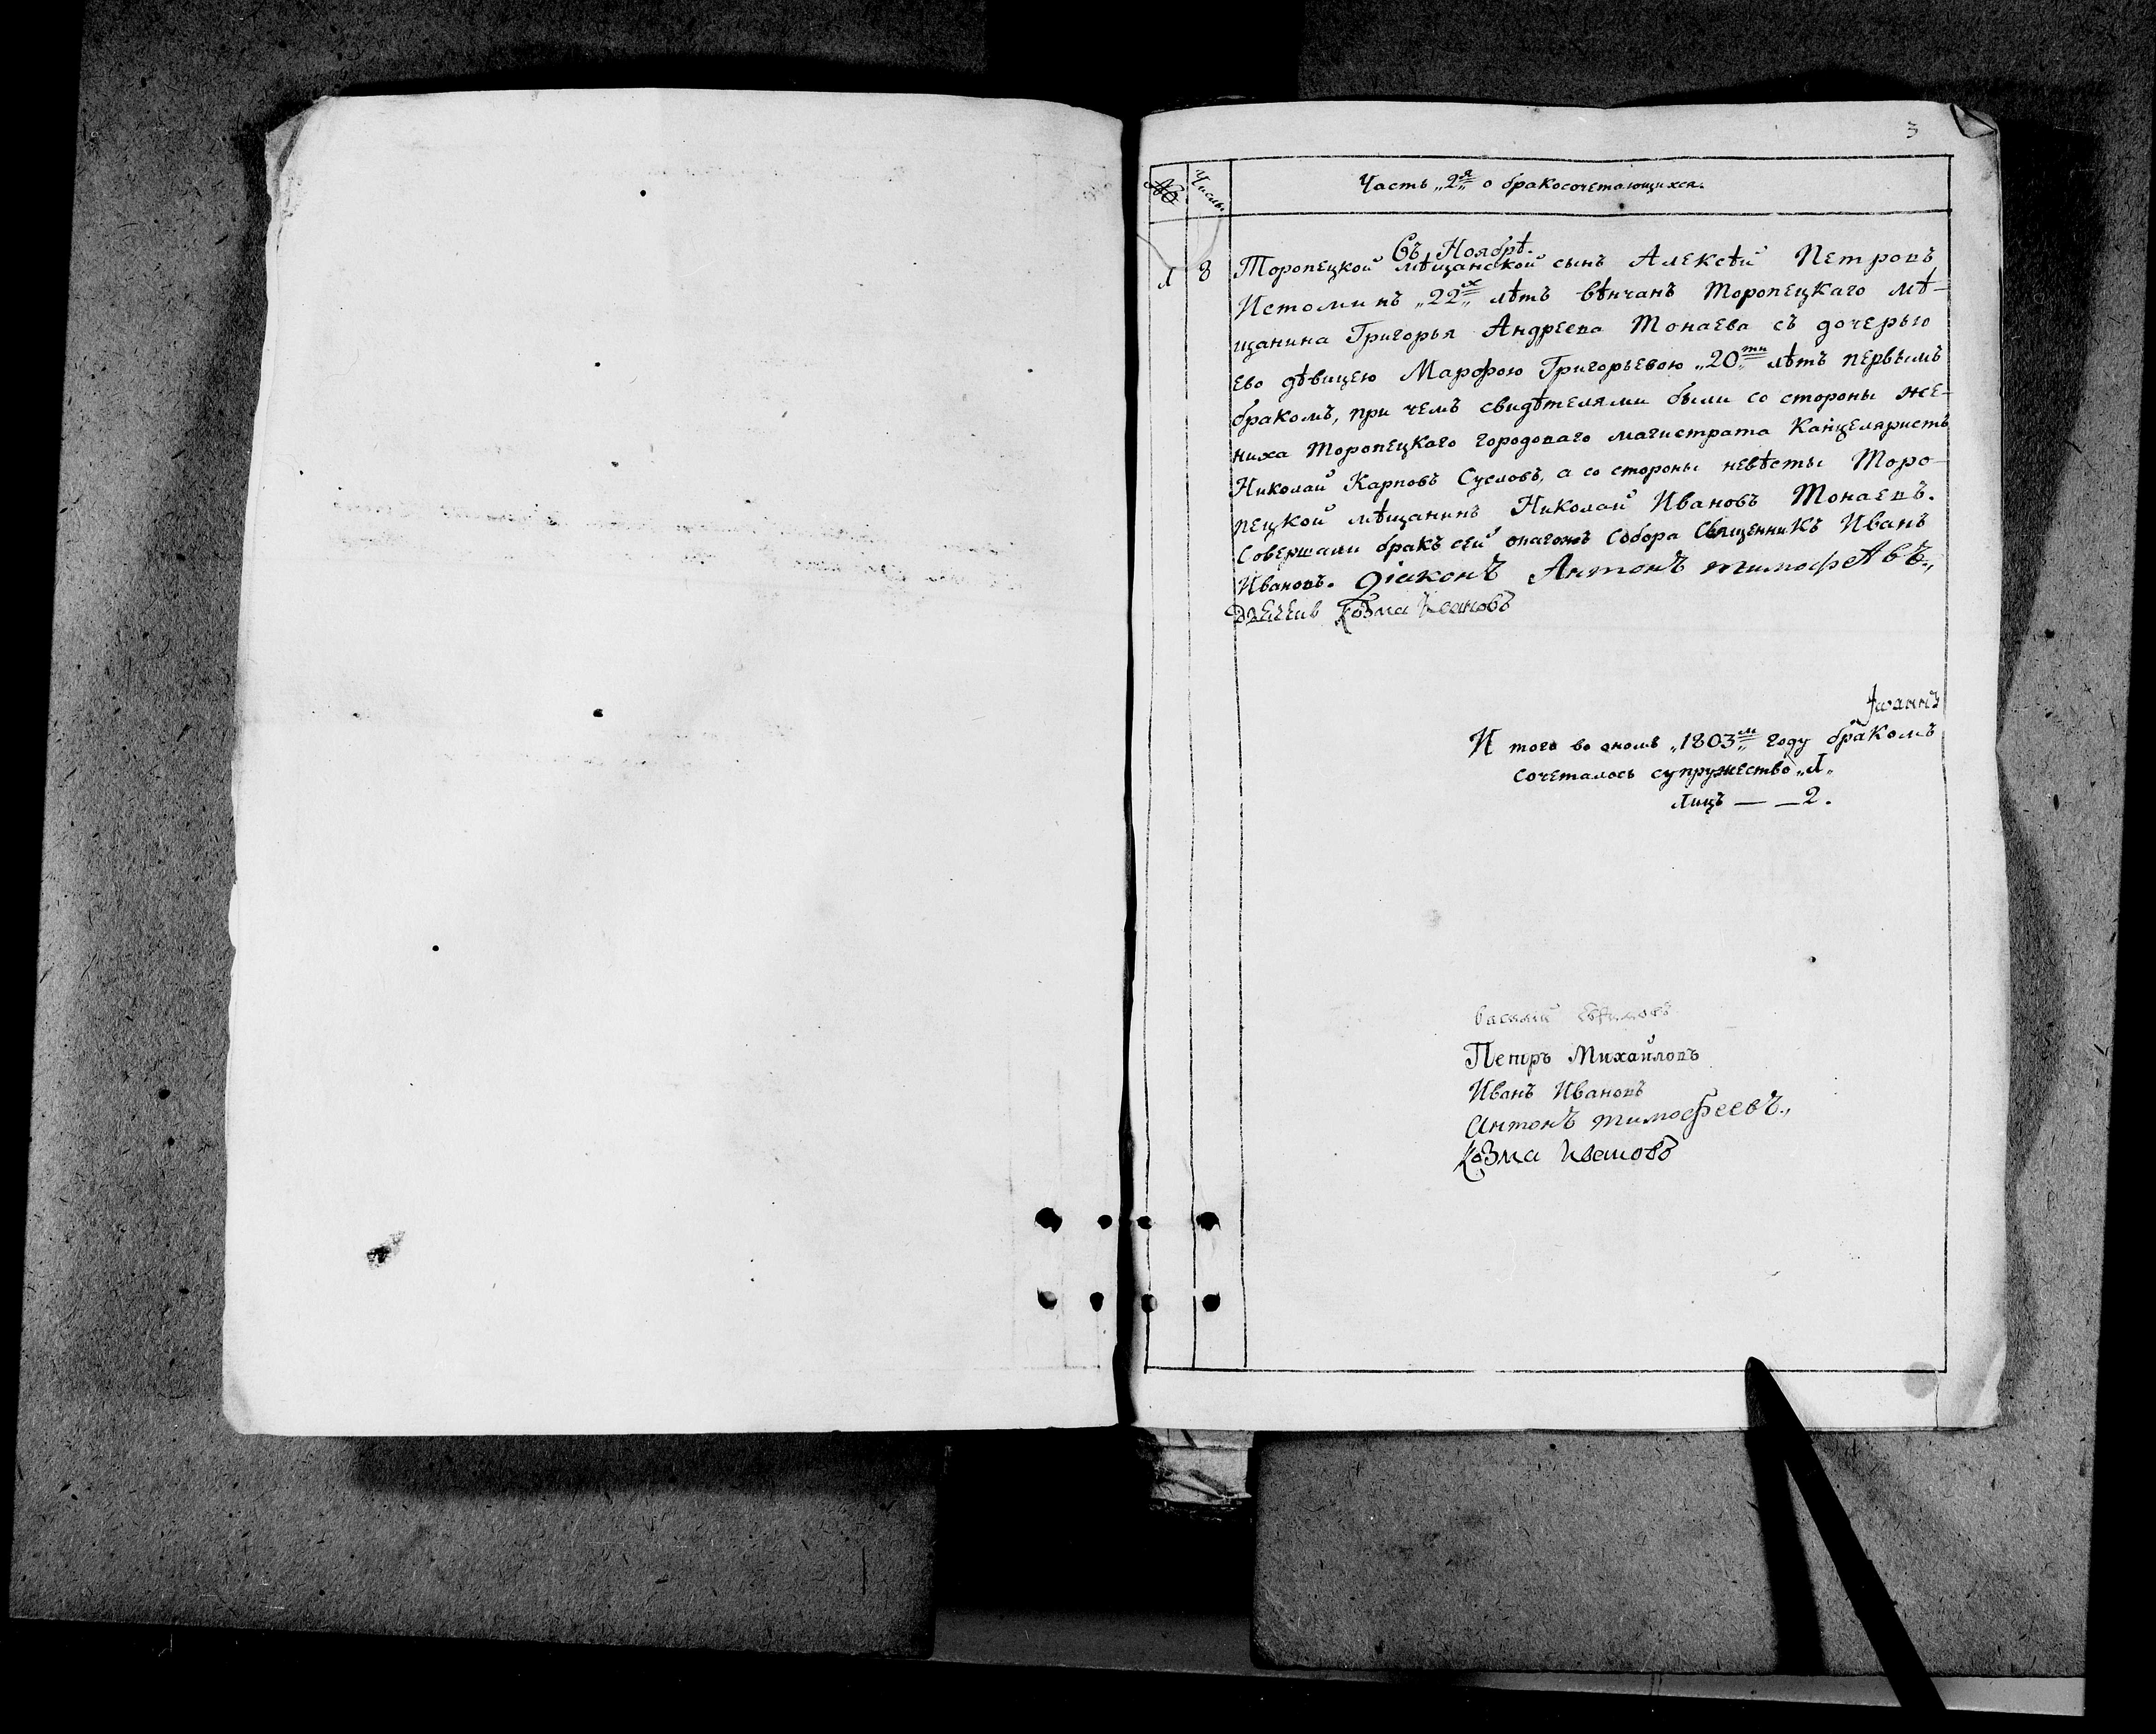 3
№ Числы Часть „2я„ о бракосочетающихся.
Въ Ноябрѣ.
1 8 Торопецкой мѣщанской сынъ Алексѣй Петровъ
Истоминъ „22х„ лѣтъ вѣнчанъ Торопецкаго мѣ-
щанина Григорья Андреева Тонаева съ дочерью
ево дѣвицею Марфою Григорьевою „20ти„ лѣтъ первымъ
бракомъ, при чемъ свидѣтелями были со стороны же-
ниха Торопецкаго городоваго магистрата Канцеляристъ
Николай Карповъ Сусловъ, а со стороны невѣсты Торо-
пецкой мѣщанинъ Николай Ивановъ Тонаевъ.
Совершали бракъ сей онагожъ Собора Священникъ Иванъ
Ивановъ. Діаконъ Антонъ тимофѣевъ.,
Козма Ивановъ
И того во ономъ „1803м„ году бракомъ
сочеталось супружество „1„
лицъ — — 2.
Василий
Петръ Михайловъ
Иванъ Ивановъ
Антонъ тимофеевъ.,
Козма Ивановъ